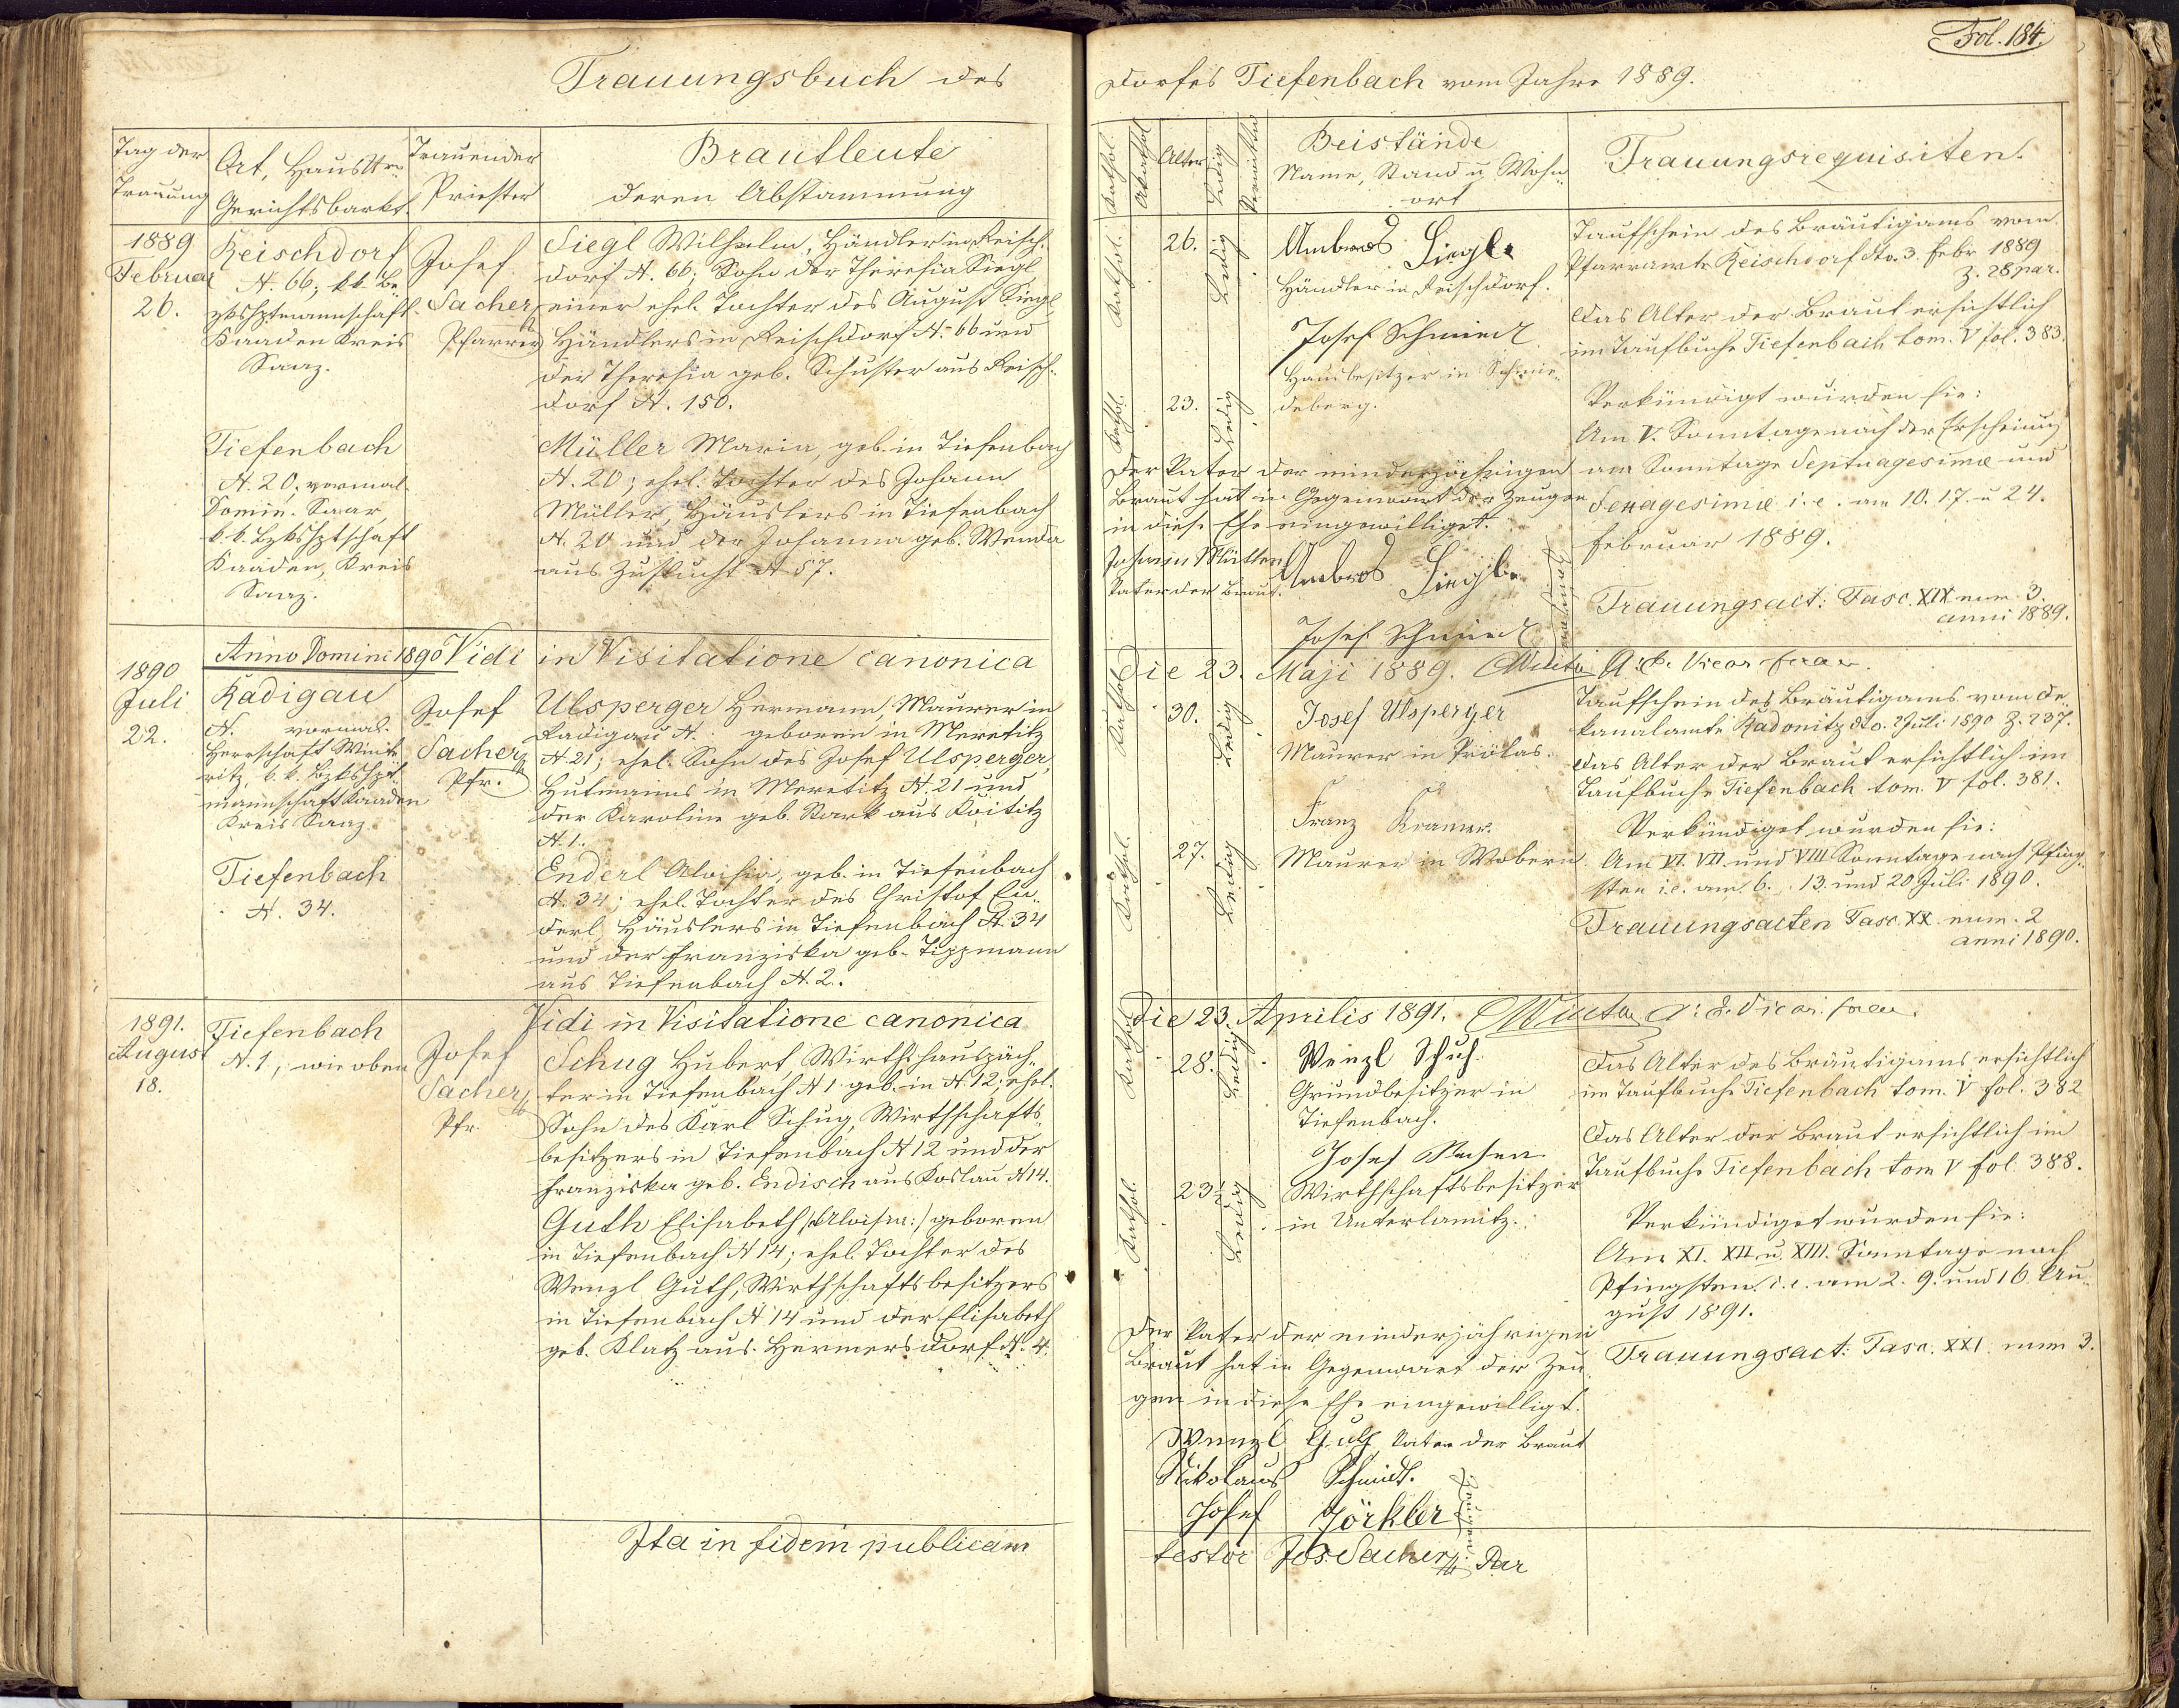 Trauungsbuch des
Tag der
Trauung
Ort, Haus Nr.
Gerichtsbarkt.
Trauender
Priester
Brautleute
deren Abstammung
1889
Februar
26.
Reischdorf
N. 66; k.k. Be-
zkshptmannschaft
Kaaden Kreis
Saaz.
Josef
Sacher
Pfarrer
Siegl Wilhelm, Händler in Reisch-
dorf N. 66; Sohn der Theresia Siegl,
einer ehel. Tochter des August Siegl,
Händlers in Reischdorf N. 66 und
der Theresia geb. Schuster aus Reisch-
dorf N. 150.
Tiefenbach
N. 20, vormal.
Domin. Saar,
k.k. Bzkshptschaft
Kaaden, Kreis
Saaz.
Müller Maria, geb. in Tiefenbach
N. 20; ehel. Tochter des Johann
Müller, Häuslers in Tiefenbach
N. 20 und der Johanna geb. Wenda
aus Zuflucht N 57.
Anno Domini 1890 Vidi in Visitatione canonica
1890
Juli
22.
Radigau
N. vormal.
Herrschaft Winte-
ritz, k.k. Bzkshpt-
mannschaft Kaaden
Kreis Saaz.
Josef
Sacher
Pfr.
Ulsperger Hermann, Maurer in
Radigau N. : geboren in Meretitz
N. 21; ehel. Sohn des Josef Ulsperger,
Hutmanns in Meretitz N. 21 und
der Karolina geb. Stark aus Koititz
N. 1.
Tiefenbach
N. 34.
Enderl Aloisia, geb. in Tiefenbach
N. 34; ehel. Tochter des Christof En-
derl, Häuslers in Tiefenbach N. 34
und der Franziska geb. Tippmann
aus Tiefenbach N. 2.
Vidi in Visitatione canonica
1891.
August
18.
Tiefenbach
N. 1, wie oben
Josef
Sacher
Pfr.
Schug Hubert, Wirthshauspäch-
ter in Tiefenbach N 1 geb. in N. 12; ehel.
Sohn des Karl Schug, Wirthschafts-
besitzers in Tiefenbach N 12 und der
Franziska geb. Endisch aus Koslau N 14.
Guth Elisabeth /:Aloisia:/ geboren
in Tiefenbach N 14; ehel. Tochter des
Wenzl Guth, Wirthschaftsbesitzers
in Tiefenbach N 14 und der Elisabeth
geb. Klatz aus Hermersdorf N. 4.
Ita in fidem publicam
Fol. 184.
Dorfes Tiefenbach vom Jahre 1889.
Kathol.
Akathol
Alter
Ledig
Verwittw
Beistände
Name, Stand u. Wohn-
ort
Trauungsrequisiten.
Kathol.
26.
Ledig
Ambros Siegl
Händler in Reischdorf.
Josef Schmiedl
Hausbesitzer in Schmie-
deberg.
Kathol.
23.
Ledig
Taufschein des Bräutigams vom
Pfarramte Reischdorf dto. 3. Febr 1889
Z. 28 par.
Das Alter der Braut ersichtlich
im Taufbuche Tiefenbach tom. V fol. 383.
Verkündigt wurden sie:
Am V. Sonntage nach der Erscheinung
am Sonntage Septuagesimæ und
Sexagesimæ i. e. am 10. 17. u 24.
Februar 1889.
Trauungsact: Fasc. XIX num. 3.
anni 1889.
Der Vater der minderjährigen
Braut hat in Gegenwart der Zeugen
in diese Ehe eingewilliget.
Johann Müller
Vater der Braut.
Ambros Siegl
Josef Schmiedl
Zeugen
Die 23. Maji 1889. Winter
Kathol
30.
Ledig
Josef Ulsperger
Maurer in Prölas.
Franz Kramer
Maurer in Wobern.
Kathol.
27.
Ledig
Taufschein des Bräutigams vom De-
kanalamte Radonitz dto. 2 Juli 1890 Z. 237.
Das Alter der Braut ersichtlich im
Taufbuche Tiefenbach tom. V fol. 381.
Verkündiget wurden sie:
Am VI. VII. und VIII Sonntage nach Pfing-
sten i. e. am 6. 13. und 20 Juli 1890.
Trauungsacten Fasc. XX num. 2
anni 1890.
Die 23. Aprilis 1891. Winter
Kathol
28.
Ledig
Wenzl Schuh
Grundbesitzer in
Tiefenbach.
Josef
Wirthschaftsbesitzer
in Unterlamitz.
Kathol.
23½
Ledig
Das Alter des Bräutigams ersichtlich
im Taufbuche Tiefenbach tom. V fol. 382
Das Alter der Braut ersichtlich im
Taufbuche Tiefenbach tom V fol. 388.
Verkündiget wurden sie:
Am XI. XII. u. XIII. Sonntage nach
Pfingsten. i. e. am 2. 9. und 16. Au-
gust 1891.
Trauungsact: Fasc. XXI. num 3.
Der Vater der minderjährigen
Braut hat in Gegenwart der Zeu-
gen in diese Ehe eingewilligt.
Wenzl Guth Vater der Braut
Nikolaus Schmidt.
Josef Görkler
testor Jos Sacher Par